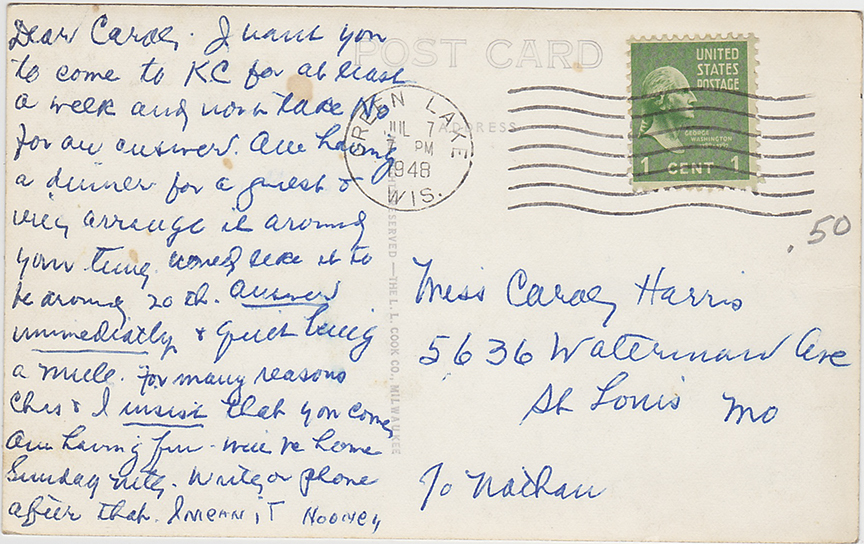 Dear Carol, I want you
to come to KC for at least
a week and won't take No
for an answer. Am having
a dinner for a guest &
will arrange it around
your time. would like it to
be around 20 th. Answer
immediately & quit being
a mule. For many reasons
Chis & I insist that you come.
Am having fun - will be home
Sunday nite. Write or phone
after that. I MEAN IT
POST CARD
ADDRESS
GREEN LAKE
JUL 7
7 PM
1948
WIS.
UNITED
STATES
POSTAGE
GEORGE
WASHINGTON
1 CENT 1
.50
Miss Carol Harris
5636 Waterman Ave
St Louis Mo
% Nathan
RESERVED — THE L. L. COOK CO., MILWAUKEE